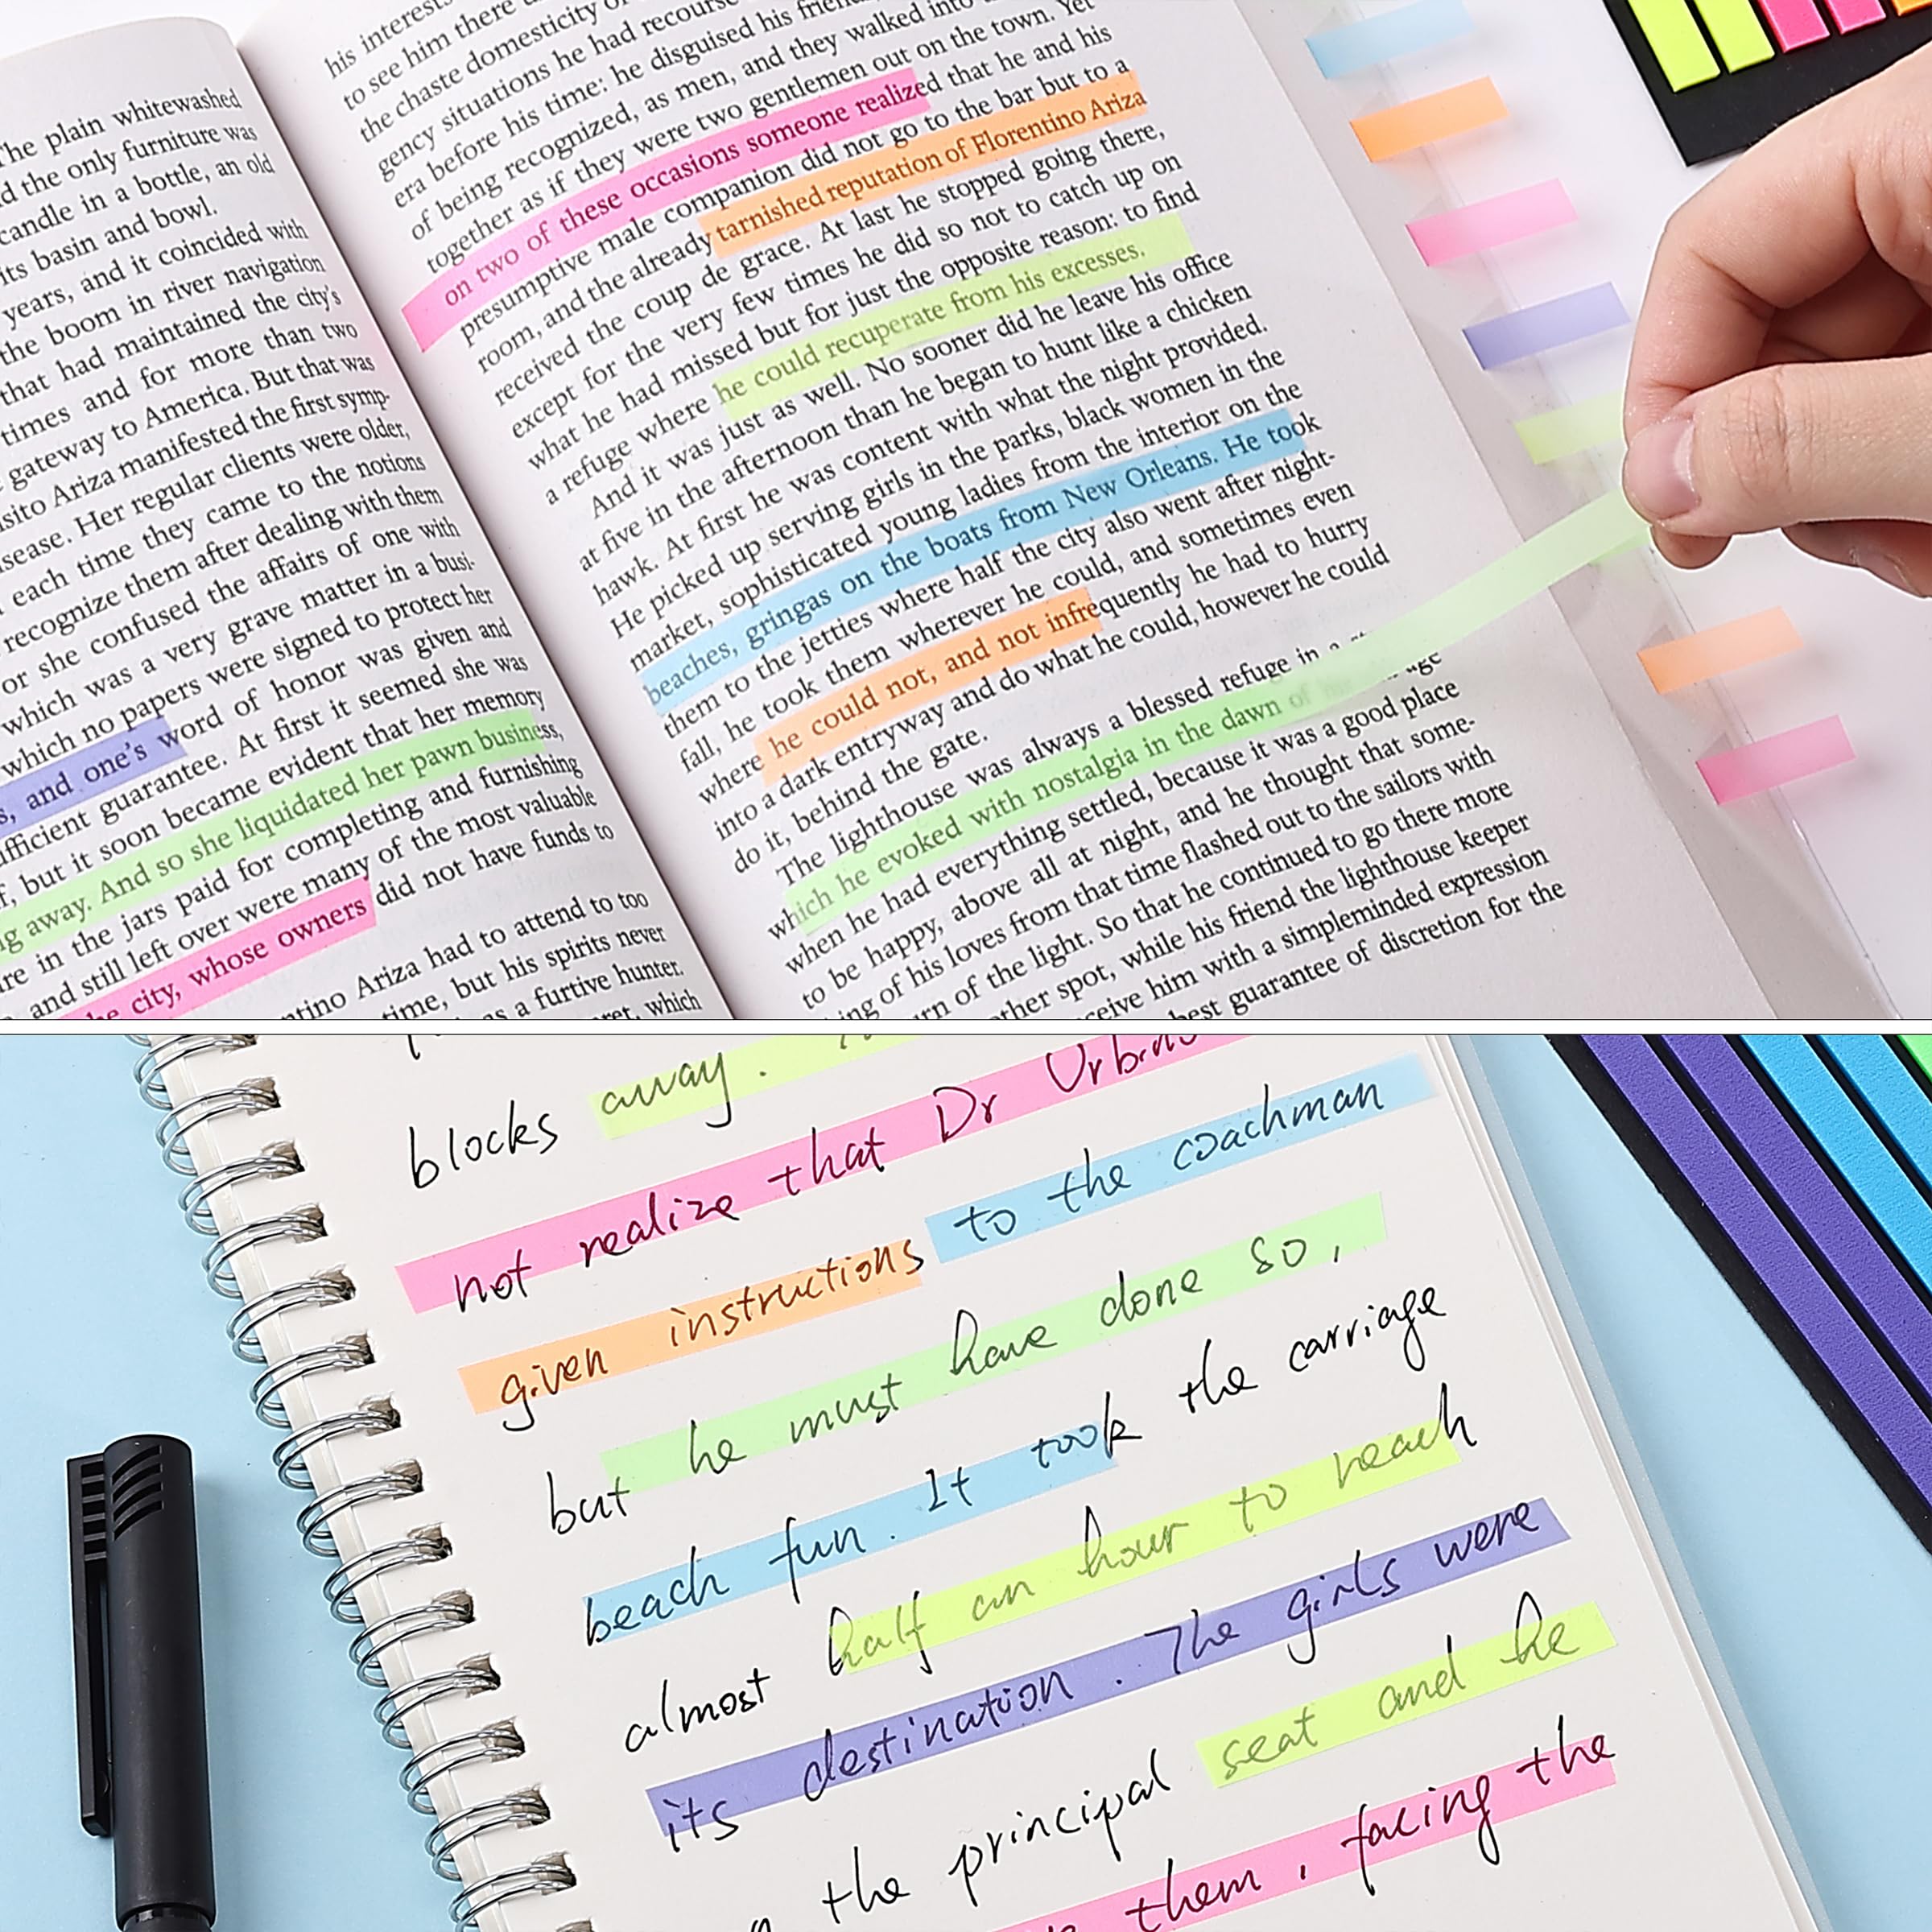 The plain whitewashed
d the only furniture was
candle in a bottle, an old
its basin and bowl.
years, and it coincided with
the boom in river navigation
that had maintained the city's
times and for more than two
gateway to America. But that was
sito Ariza manifested the first symp-
sease. Her regular clients were older,
each time they came to the notions
recognize them after dealing with them
or she confused the affairs of one with
which was a very grave matter in a busi-
which no papers were signed to protect her
s, and one's word of honor was given and
fficient guarantee. At first it seemed she was
f, but it soon became evident that her memory
g away. And so she liquidated her pawn business,
re in the jars paid for completing and furnishing
and still left over were many of the most valuable
he city, whose owners did not have funds to
ntino Ariza had to attend to too
time, but his spirits never
as a furtive hunter.
ret, which
his interests
to see him there
the chaste domesticity of
gency situations he had recourse
era before his time: he disguised his
of being recognized, as men, and they walked into
together as if they were two gentlemen out on the town. Yet
on two of these occasions someone realized that he and his
presumptive male companion did not go to the bar but to a
room, and the already tarnished reputation of Florentino Ariza
received the coup de grace. At last he stopped going there,
except for the very few times he did so not to catch up on
what he had missed but for just the opposite reason: to find
a refuge where he could recuperate from his excesses.
And it was just as well. No sooner did he leave his office
at five in the afternoon than he began to hunt like a chicken
hawk. At first he was content with what the night provided.
He picked up serving girls in the parks, black women in the
market, sophisticated young ladies from the interior on the
beaches, gringas on the boats from New Orleans. He took
them to the jetties where half the city also went after night-
fall, he took them wherever he could, and sometimes even
where he could not, and not infrequently he had to hurry
into a dark entryway and do what he could, however he could
do it, behind the gate.
The lighthouse was always a blessed refuge in a
which he evoked with nostalgia in the dawn of
when he had everything settled, because it was a good place
to be happy, above all at night, and he thought that some-
ing of his loves from that time flashed out to the sailors with
urn of the light. So that he continued to go there more
ther spot, while his friend the lighthouse keeper
ceive him with a simpleminded expression
best guarantee of discretion for the
blocks away.
not realize that Dr Urbino
given instructions to the coachman
but he must have done so,
beach fun. It took the carriage
almost half an hour to reach
its destination. The girls were
the principal seat and he
them, facing the